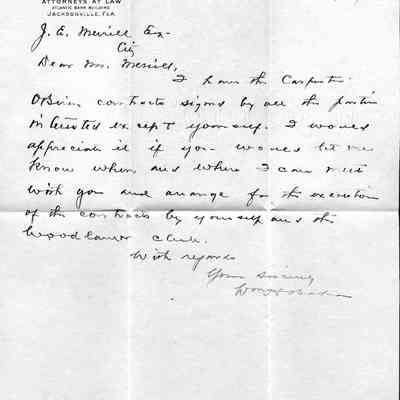 ATTORNEYS AT LAW
ATLANTIC BANK BUILDING
JACKSONVILLE, FLA.
J. E. Merrill Esq-
City
Dear Mr. Merrill,
I have the Carpenter
O'Brien contracts signed by all the parties
interested except yourself. I would
appreciate it if you would let me
know when and where I can meet
with you and arrange for the execution
of the contracts by yourself and the
Woodlawn Club.
With regards
Yours sincerely